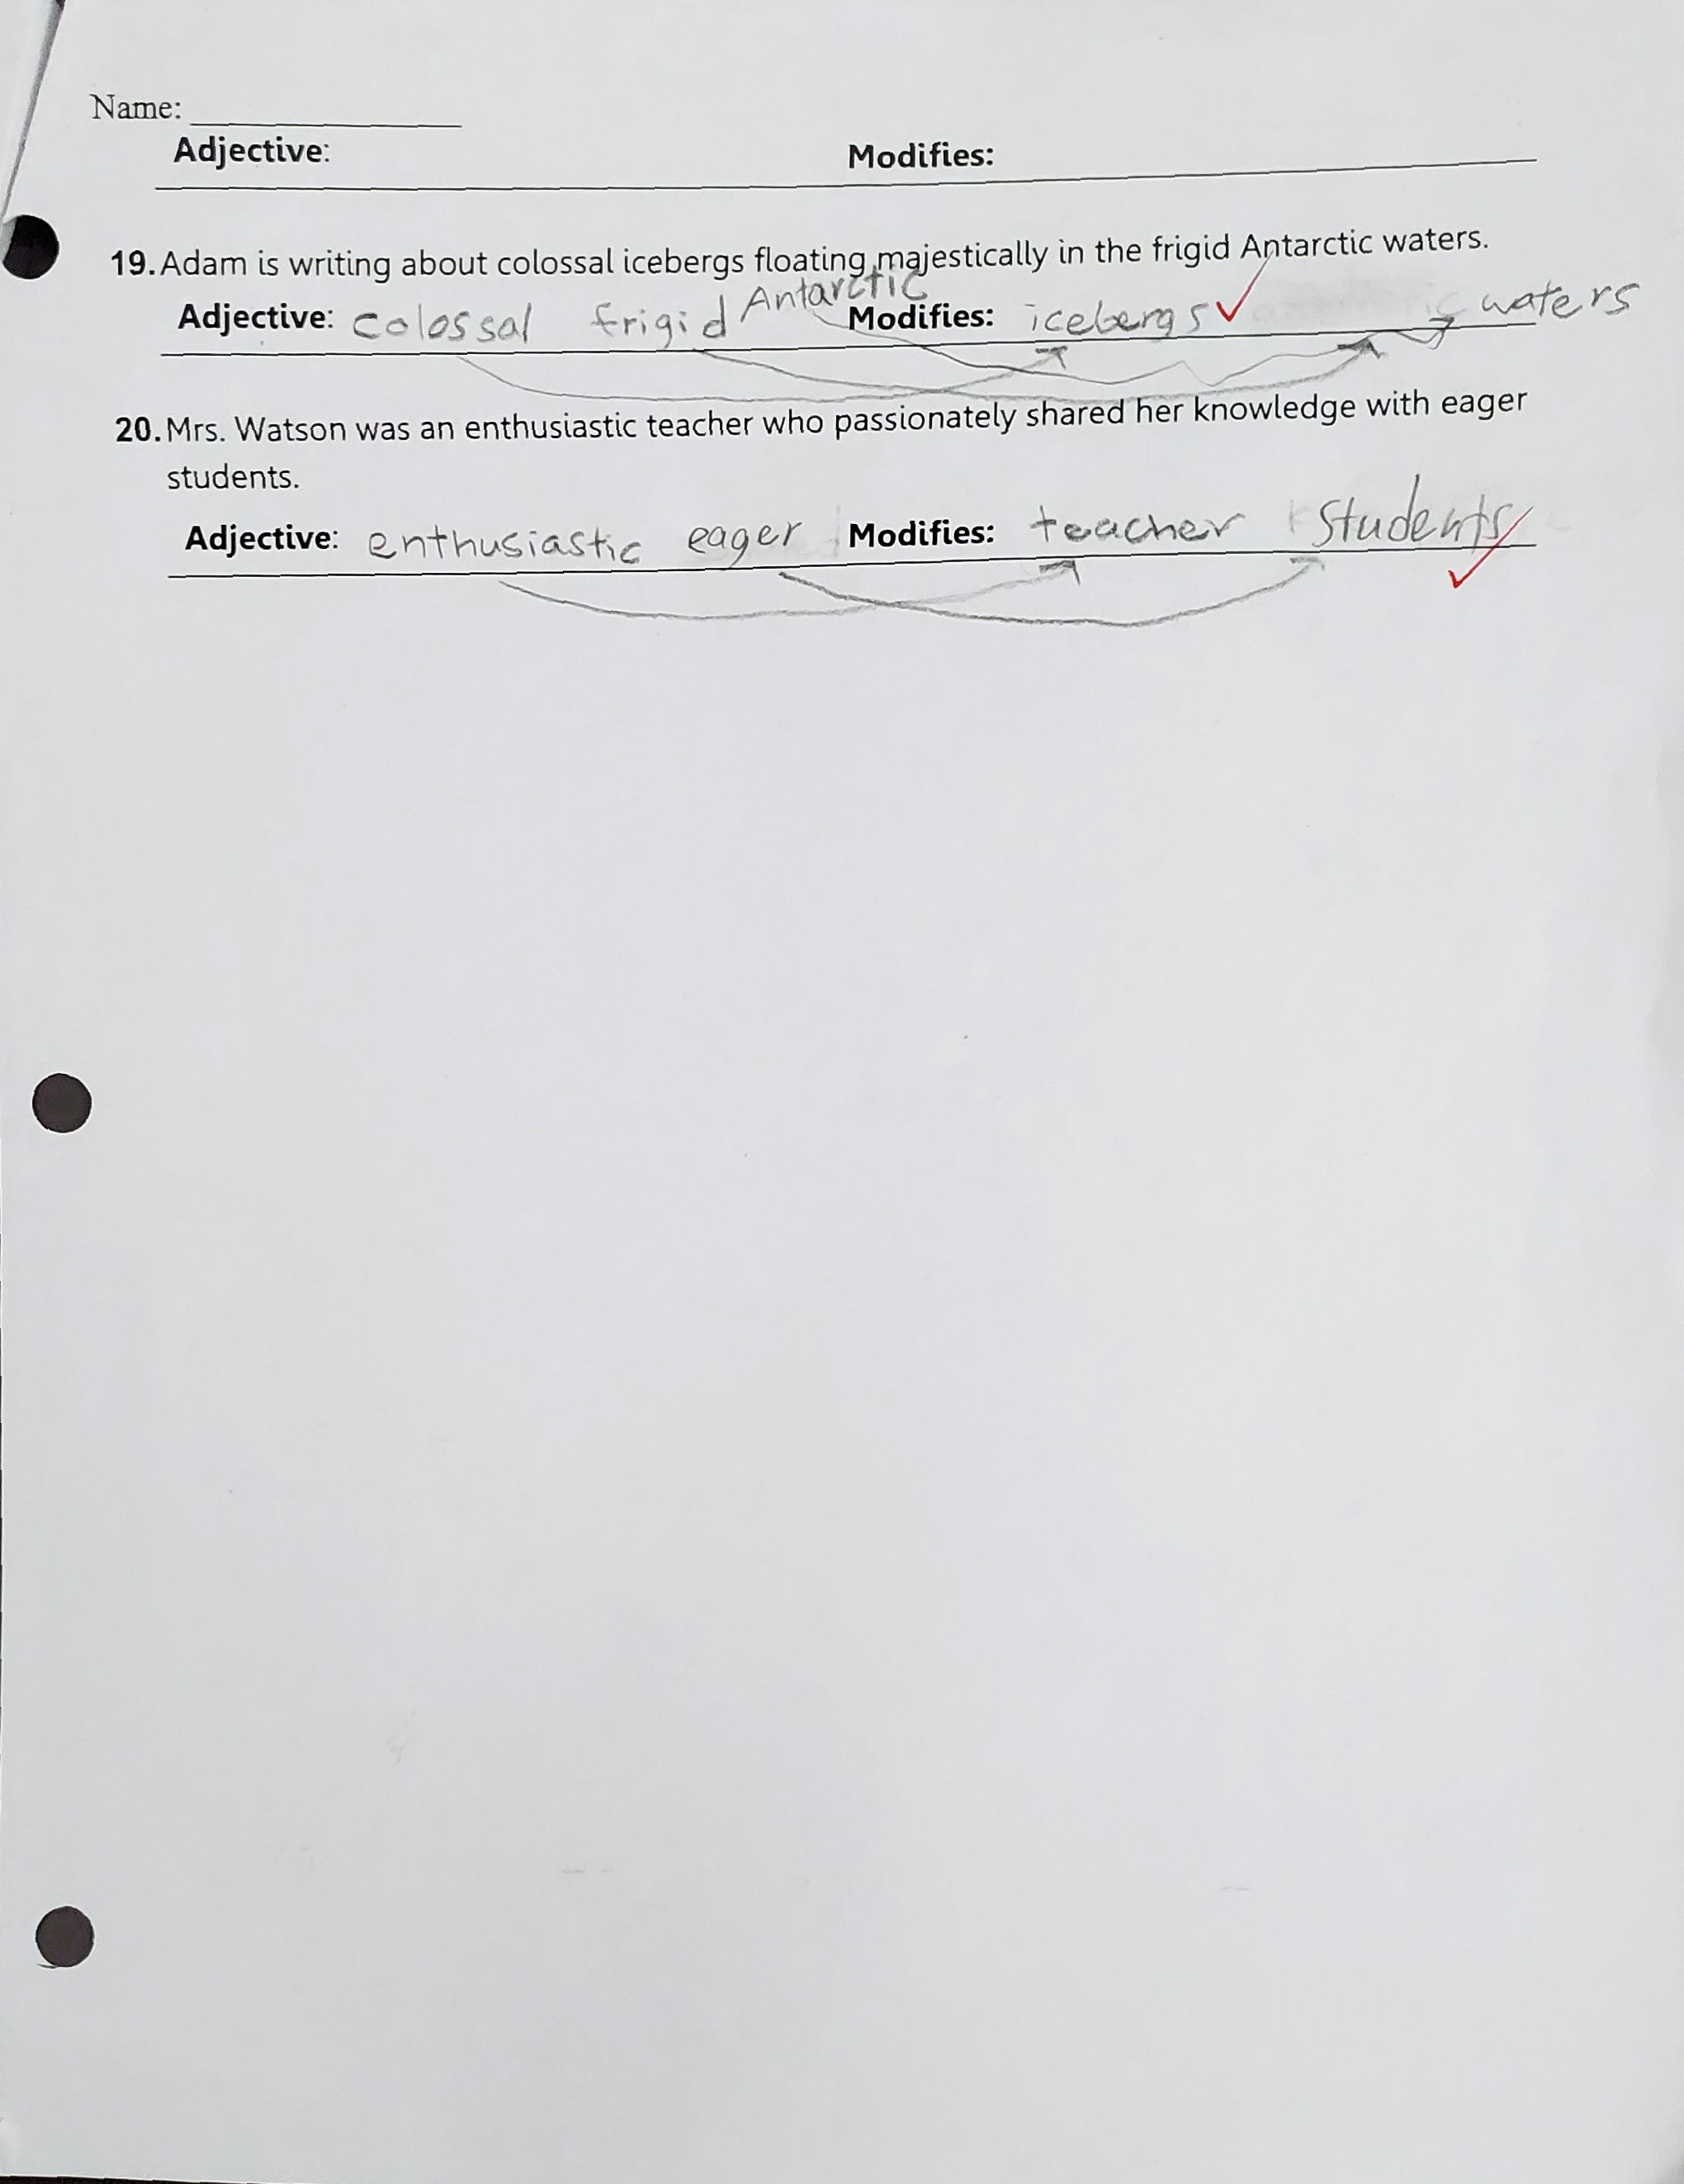 Name: ______________
Adjective: Modifies:
19. Adam is writing about colossal icebergs floating majestically in the frigid Antarctic waters.
Adjective: colossal frigid Antarctic Modifies: icebergs waters
20. Mrs. Watson was an enthusiastic teacher who passionately shared her knowledge with eager
students.
Adjective: enthusiastic eager Modifies: teacher Students